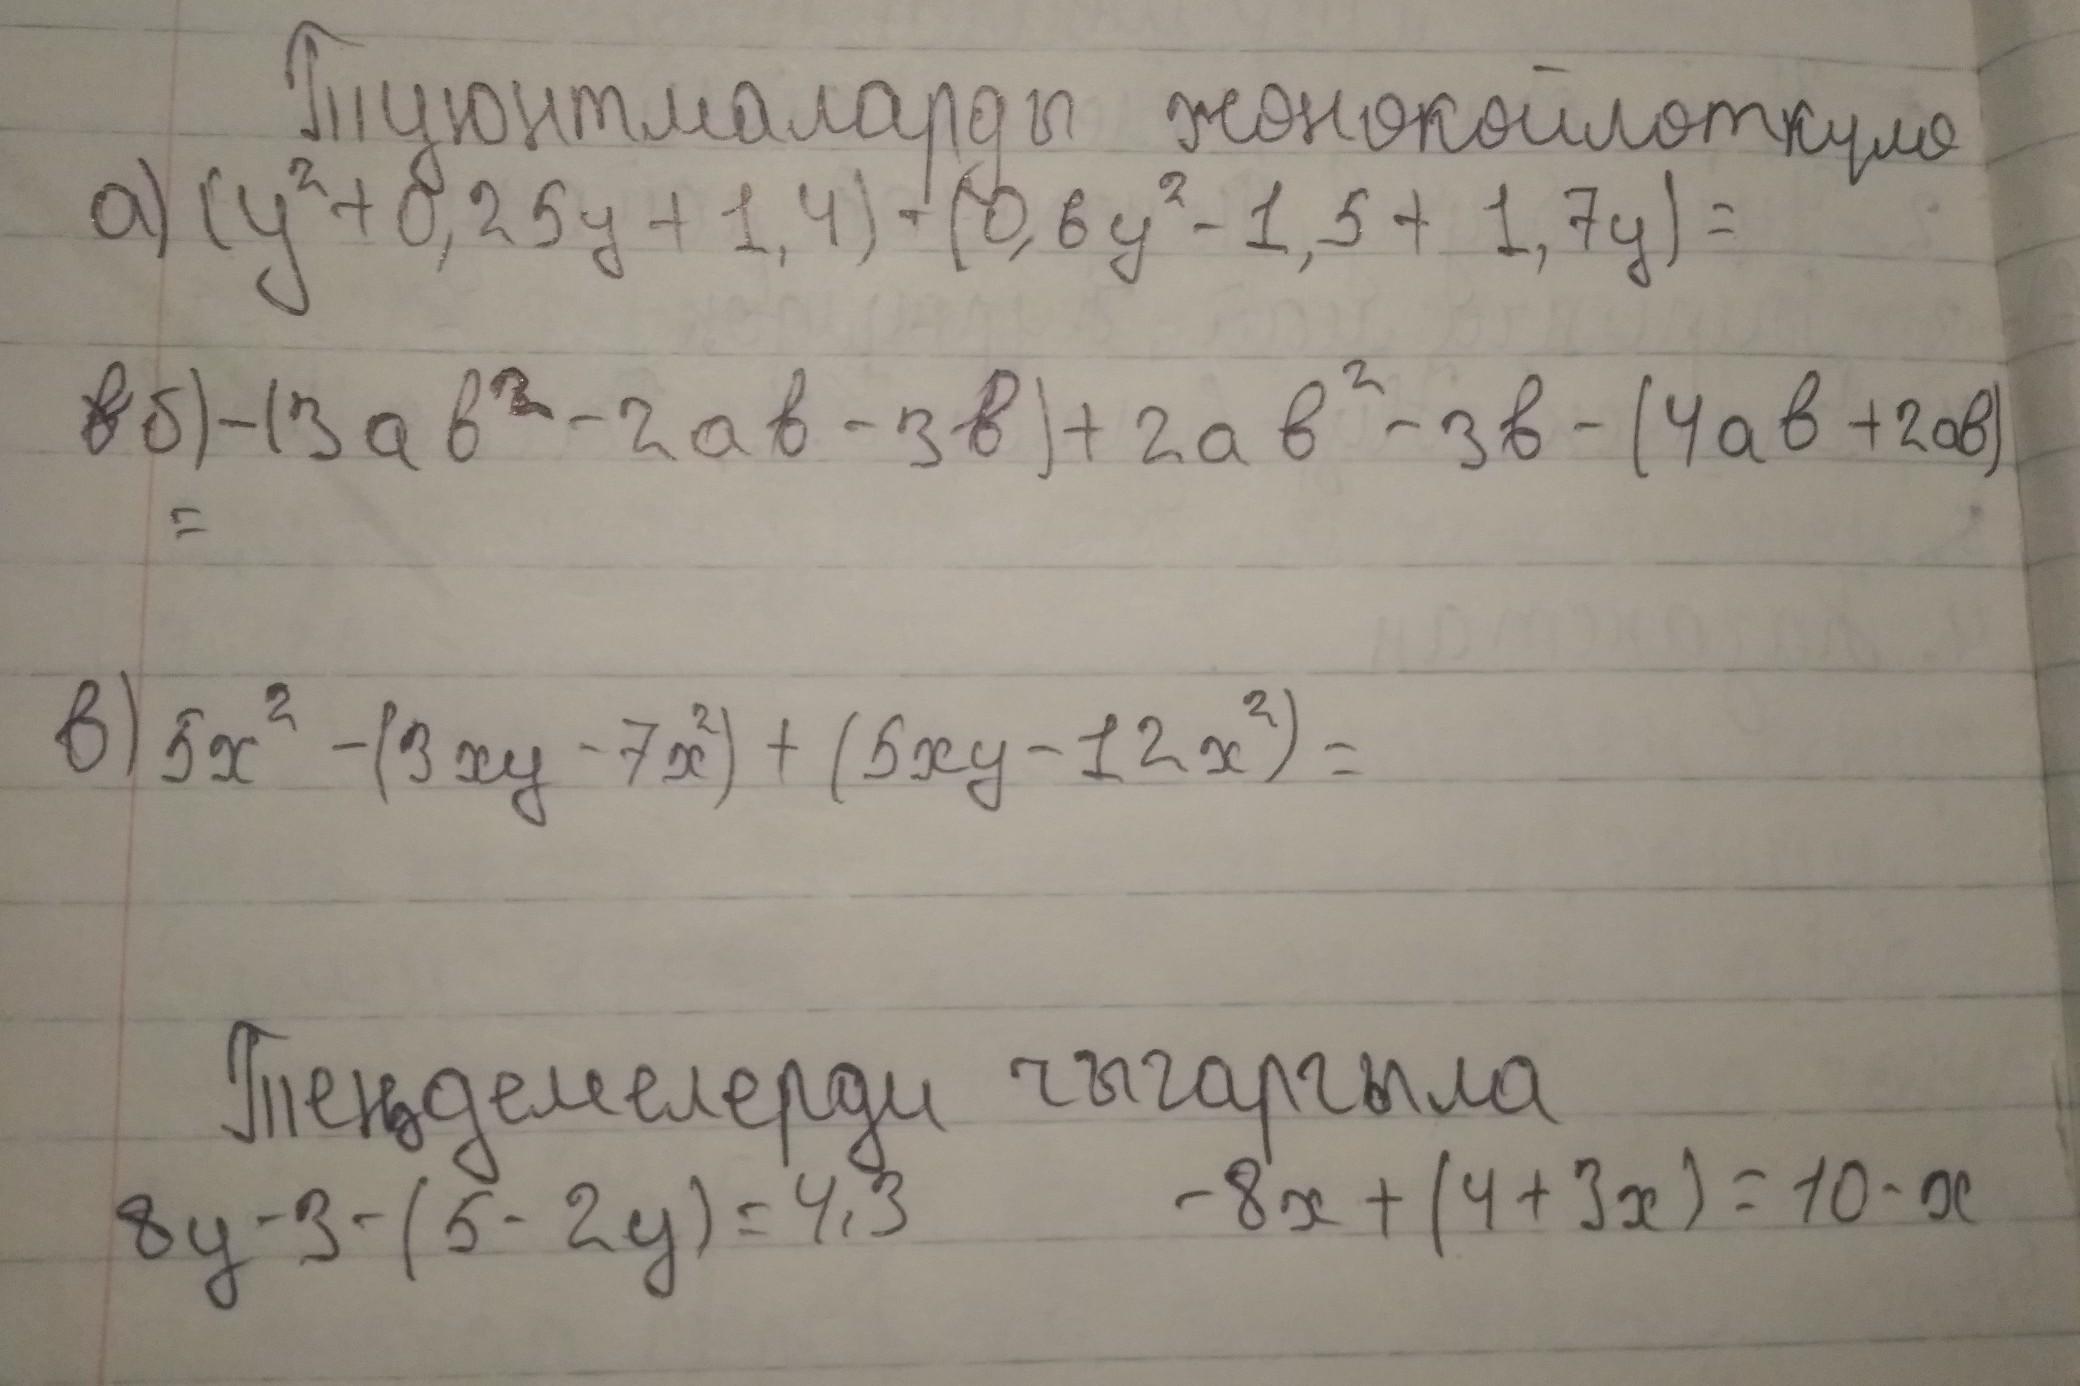 Туюнтмаларды жонокойлоткуло
а) (y² + 0,25y + 1,4) - (0,6y² - 1,5 + 1,7y) =
б) - (3ab² - 2ab - 3b) + 2ab² - 3b - (4ab + 2ab)
=
в) 5x² - (3xy - 7x²) + (5xy - 12x²) =
Теңдемелерди чыгаргыла
8y - 3 - (5 - 2y) = 4,3 -8x + (4 + 3x) = 10 - x